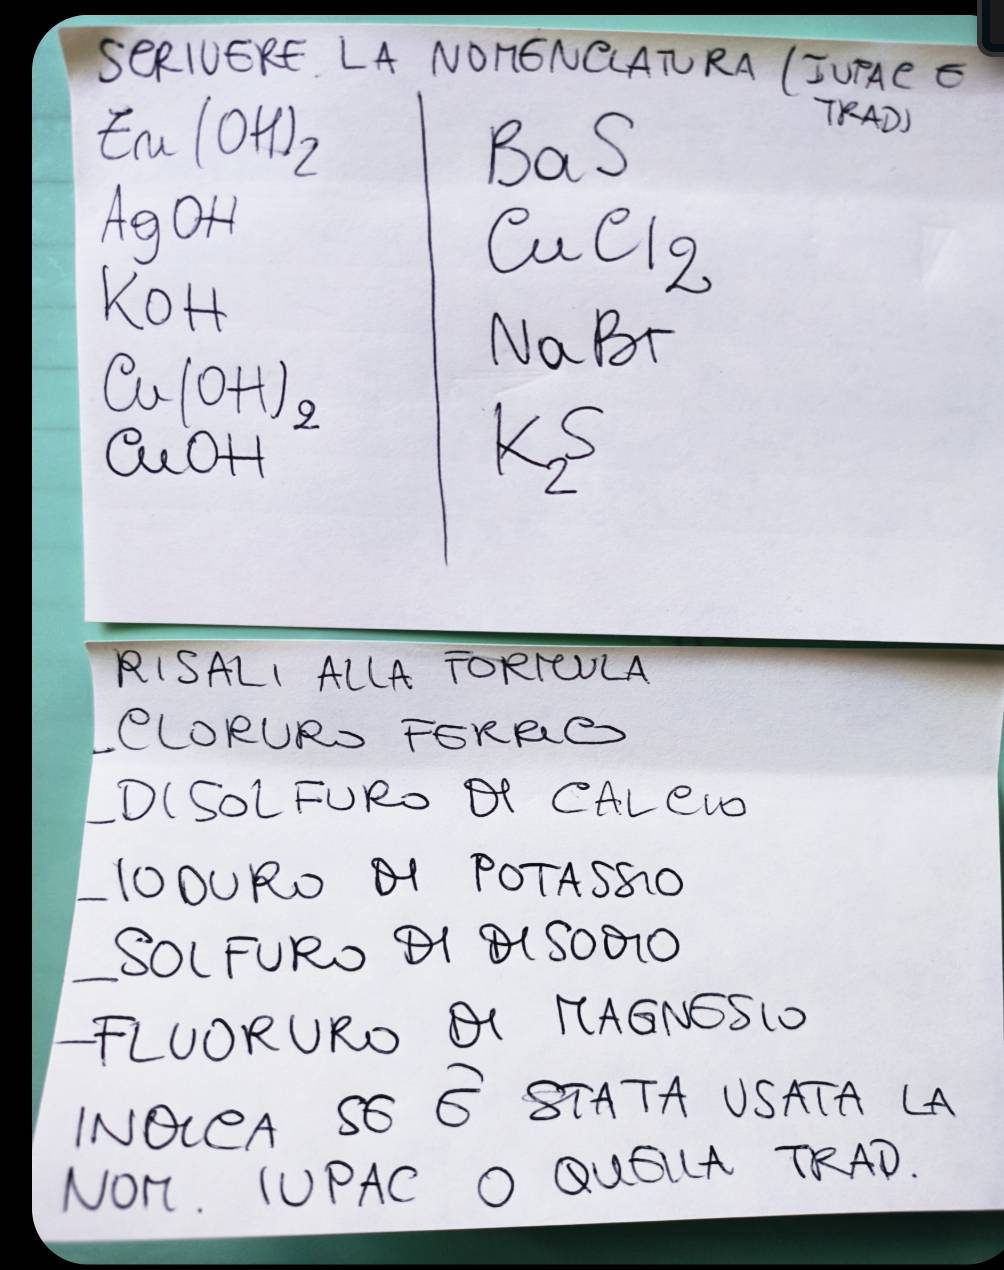 SCRIVERE LA NOMENCLATURA (IUPAC E
TRAD)
Zn(OH)2
AgOH
KOH
Cu(OH)2
CuOH
BaS
CuCl2
NaBr
K2S
RISALI ALLA FORMULA
_CLORURO FERRICO
_DISOLFURO DI CALCIO
_IODURO DI POTASSIO
_SOLFURO DI DISODIO
_FLUORURO DI MAGNESIO
INDICA SE È STATA USATA LA
NOM. IUPAC O QUELLA TRAD.